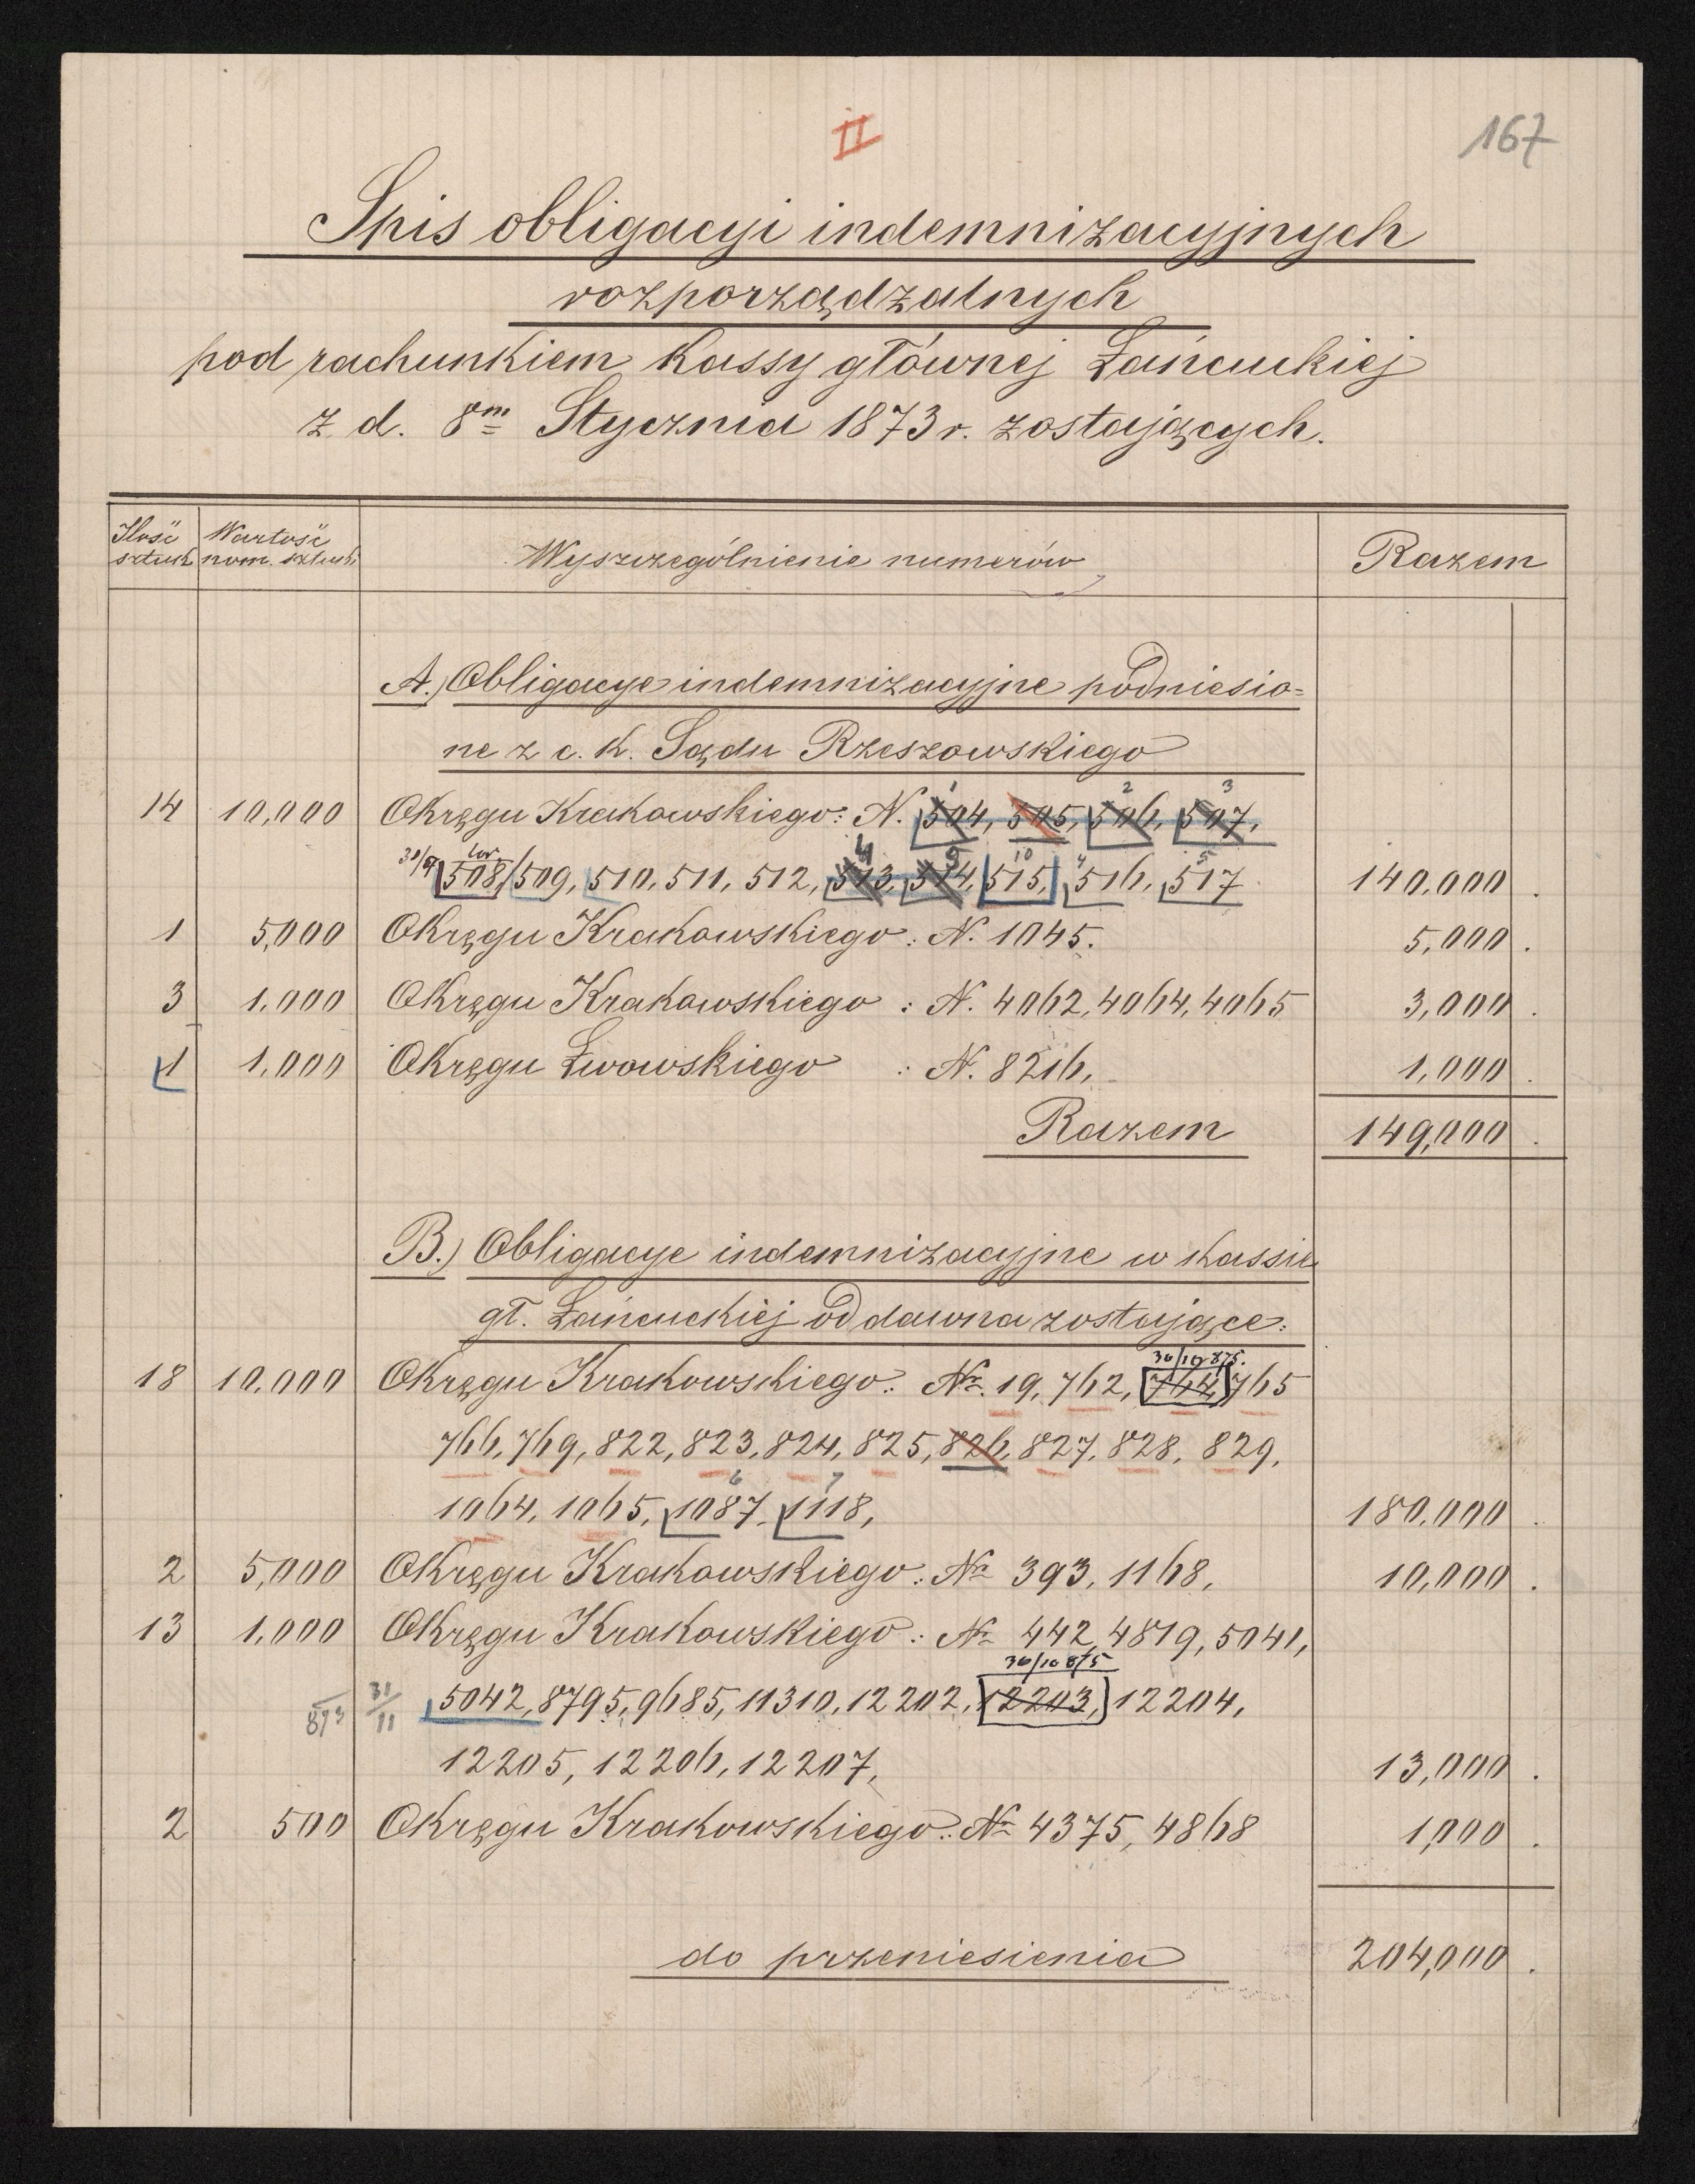 II
167
Spis obligacyi indemnizacyjnych
rozporządzalnych
pod rachunkiem Kassy głównej Łańcuckiej
z d. 8m Stycznia 1873 r. zostających.
Ilość sztuk Wartość nom. sztuki Wyszczególnienie numerów Razem
A.) Obligacye indemnizacyjne podniesio=
ne z c. k. Sądu Rzeszowskiego
1 2 3
14 10,000 Okręgu Krakowskiego: N. 504, 505, 506, 507,
4 9 10 4 5
508, 509, 510, 511, 512, 513, 514, 515, 516, 517 140,000.
1 5,000 Okręgu Krakowskiego: N. 1045. 5,000.
3 1,000 Okręgu Krakowskiego: N. 4062, 4064, 4065 3,000.
1 1,000 Okręgu Lwowskiego: N. 8216, 1,000.
Razem 149,000.
B.) Obligacye indemnizacyjne w kassie
gł. Łańcuckiej od dawna zostające:
30/10 875.
18 10,000 Okręgu Krakowskiego: Nr. 19, 762, 764, 765
766, 769, 822, 823, 824, 825, 826, 827, 828, 829,
6 7
1064, 1065, 1087, 1118, 180,000.
2 5,000 Okręgu Krakowskiego: Nr 393, 1168, 10,000.
13 1,000 Okręgu Krakowskiego: Nr 442, 4819, 5041,
30/10 875
873 31/11 5042, 8795, 9685, 11310, 12202, 12203, 12204,
12205, 12206, 12207, 13,000.
2 500 Okręgu Krakowskiego: Nr 4375, 4868 1,000.
do przeniesienia 204,000.